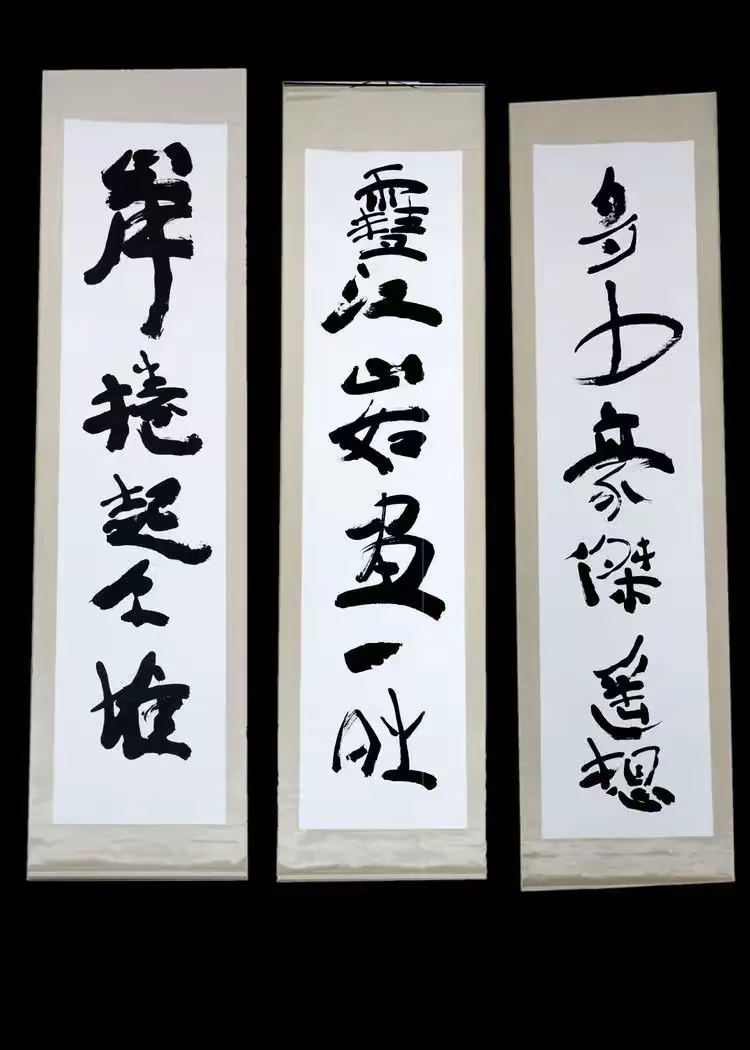 岸捲起千堆
雪江山如畫一時
多少豪傑遙想